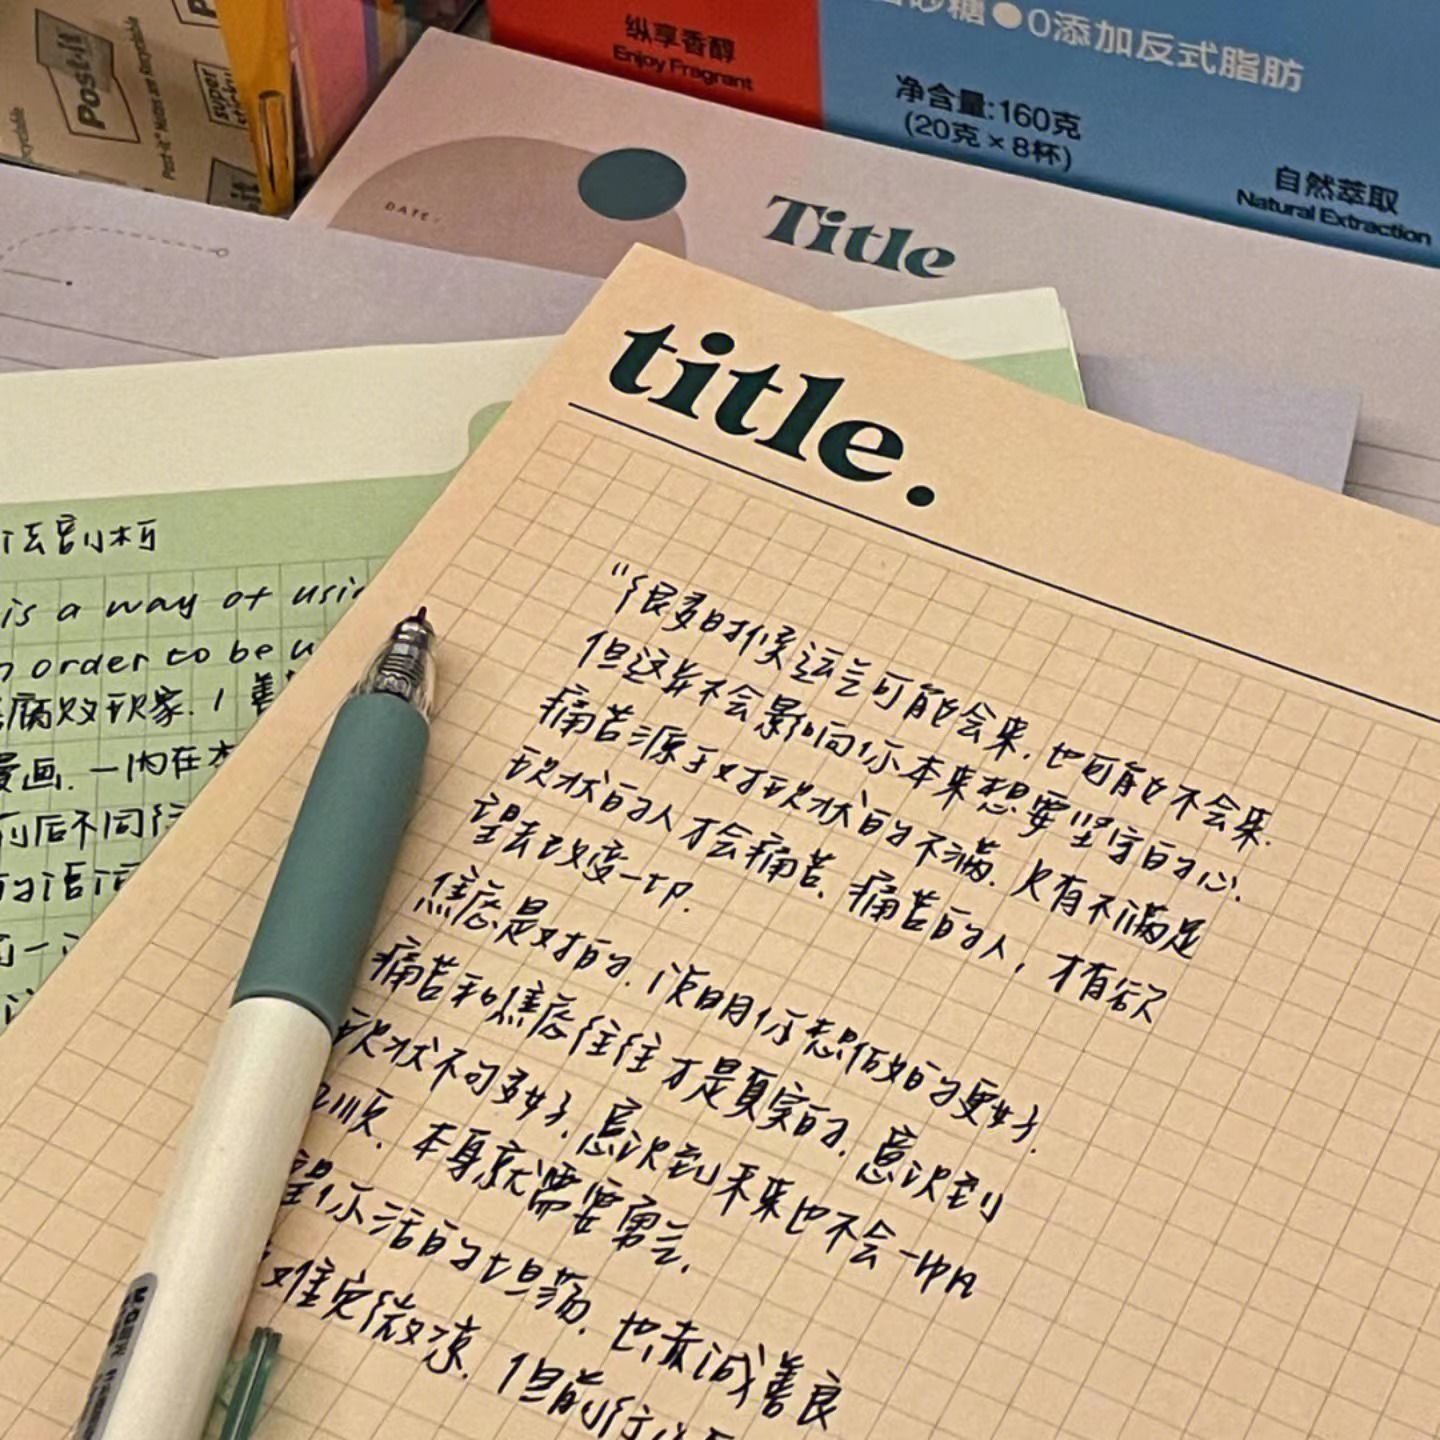 Post-it
Post-it® Notes are Recyclable
super
纵享香醇
Enjoy Fragrant
砂糖●0添加反式脂肪
净含量:160克
(20克×8杯)
自然萃取
Natural Extraction
DATE.
Title
title.
is a way of usin
order to be u
腐败现象.
漫画. 一内在
前后不同
的话语
“很多时候运气可能会来. 也可能不会来.
但这并不会影响你本来想要坚守的心.
痛苦源于对现状的不满. 只有不满足
现状的人才会痛苦. 痛苦的人, 才有欲
望去改变一切.
焦虑是对的. 说明你想做的更好.
痛苦和焦虑往往才是真实的. 意识到
现状不可多好. 意识到未来也不会一帆
风顺. 本身就需要勇气.
望你活的坦荡. 也赤诚善良
难免微凉. 但前行